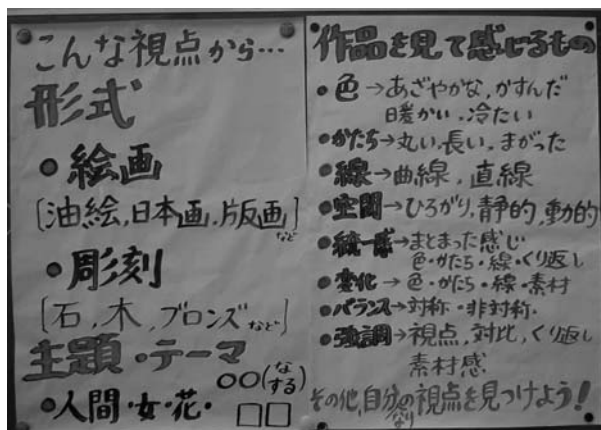 こんな視点から…
形式
●絵画
[油絵,日本画,片版画]など
●彫刻
[石,木,ブロンズなど]
主題・テーマ
○○(なする)
●人間・女・花・□□
作品を見て感じるもの
●色→あざやかな,かすんだ
暖かい・冷たい
●かたち→丸い,長い,まがった
●線→曲線,直線
●空間→ひろがり,静的,動的
●統一感→まとまった感じ
色・かたち・線・くり返し
●変化→色・かたち・線・素材
●バランス→対称・非対称・
●強調→視点,対比,くり返し
素材感
その他,自分なりの視点を見つけよう!